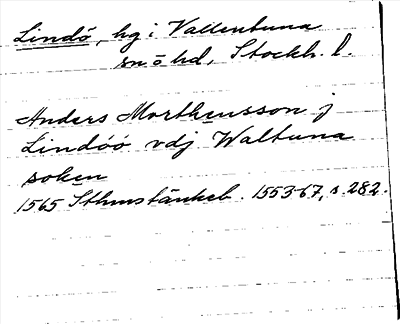 Lindö, hg i Vallentuna
sn o hd, Stockh. l.
Anders Morthensson j
Lindóó vdj Waltuna
soken
1565 Sthmstänkeb. 1553-67, s. 282.